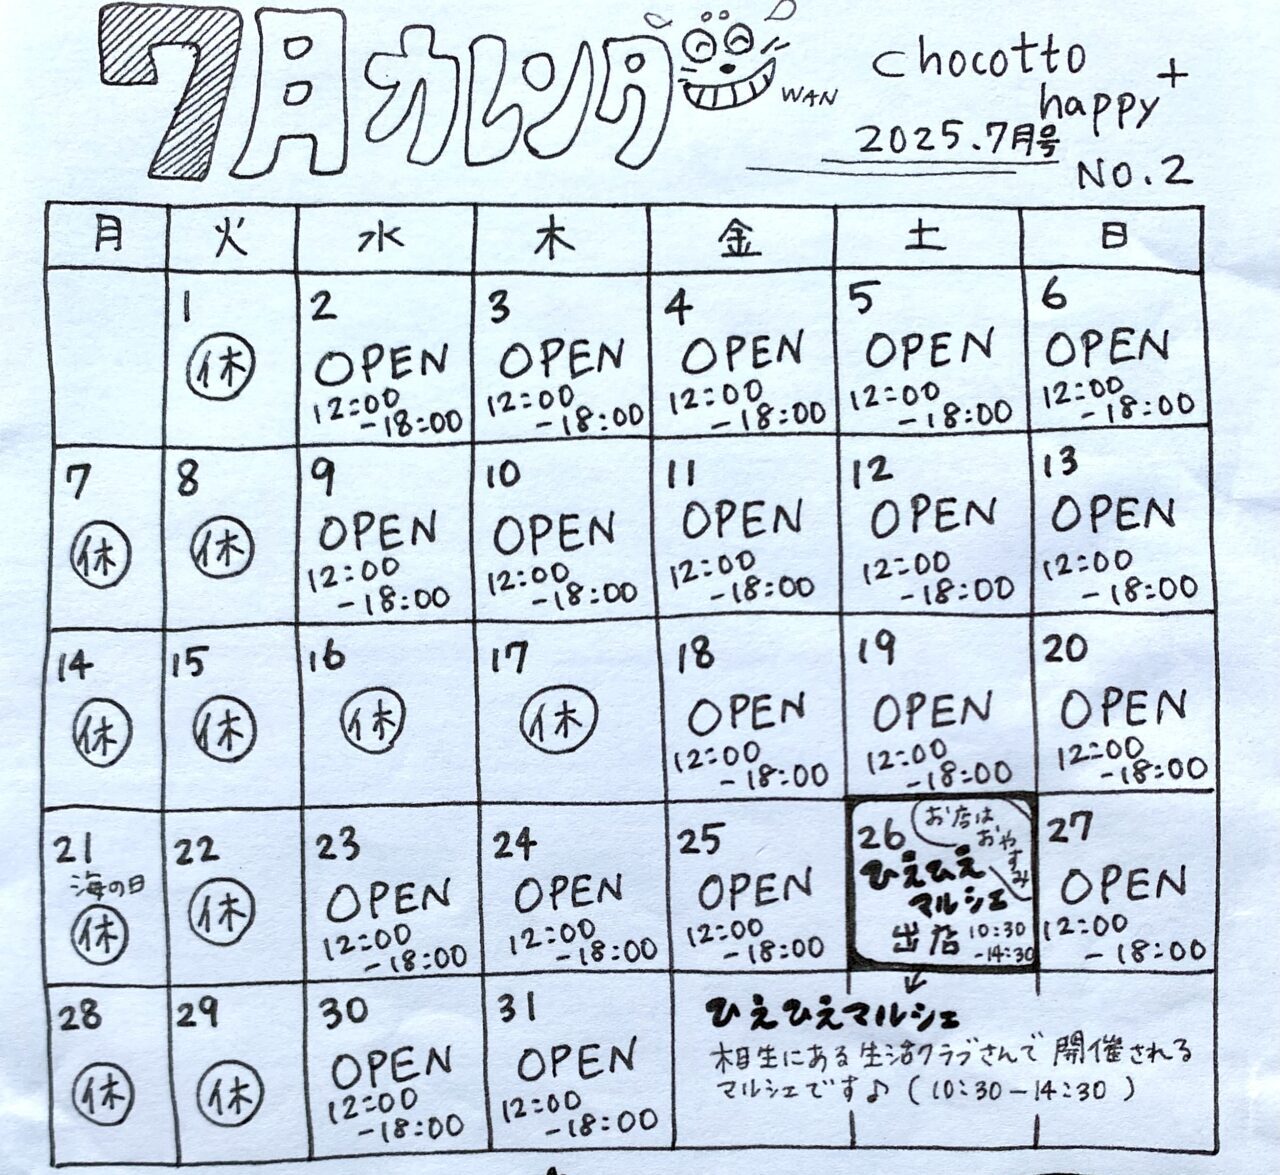 7月カレンダー
WAN
chocotto
happy+
2025.7月号
NO.2
月 火 水 木 金 土 日
1 2 3 4 5 6
休 OPEN OPEN OPEN OPEN OPEN
12:00 12:00 12:00 12:00 12:00
-18:00 -18:00 -18:00 -18:00 -18:00
7 8 9 10 11 12 13
休 休 OPEN OPEN OPEN OPEN OPEN
12:00 12:00 12:00 12:00 12:00
-18:00 -18:00 -18:00 -18:00 -18:00
14 15 16 17 18 19 20
休 休 休 休 OPEN OPEN OPEN
12:00 12:00 12:00
-18:00 -18:00 -18:00
21 22 23 24 25 26 27
海の日
休 休 OPEN OPEN OPEN
12:00 12:00 12:00
-18:00 -18:00 -18:00
お店は
おや
すみ
ひえひえ
マルシェ
出店 10:30
-14:30
OPEN
12:00
-18:00
28 29 30 31
休 休 OPEN OPEN
12:00 12:00
-18:00 -18:00
ひえひえマルシェ
相生にある生活クラブさんで開催される
マルシェです♪(10:30-14:30)